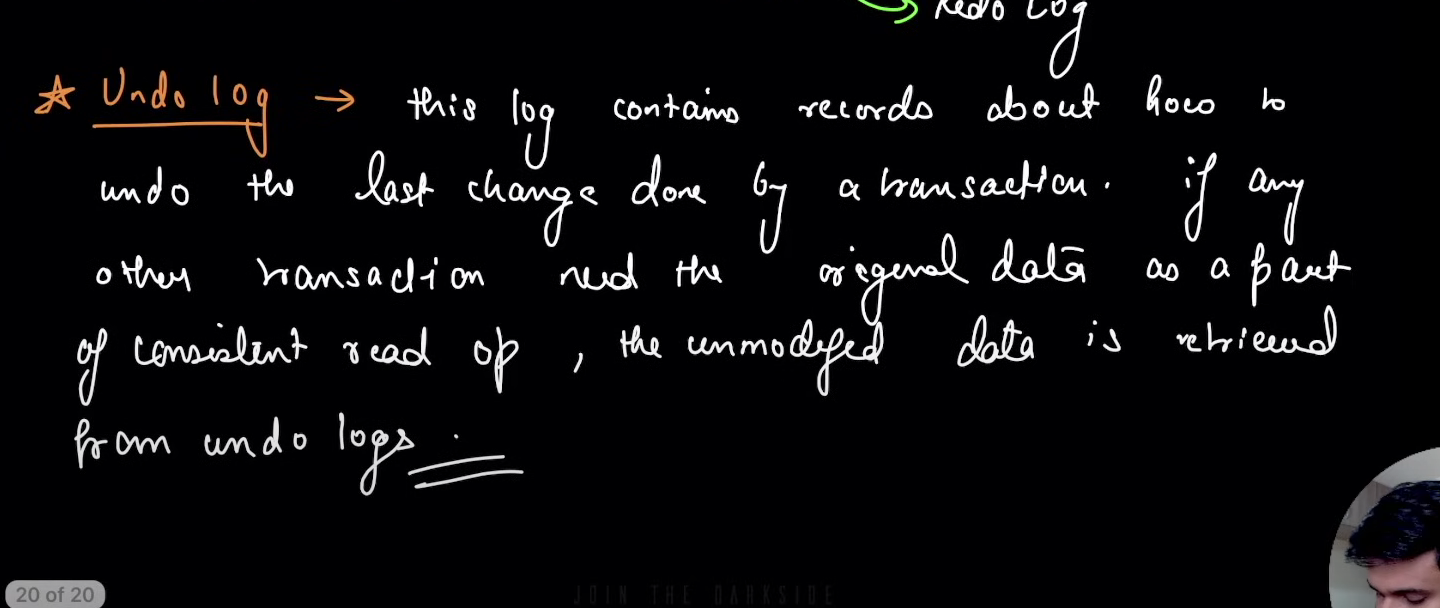 Redo Log
☆ Undo log → this log contains records about how to
undo the last change done by a transaction. if any
other transaction need the original data as a part
of consistent read op, the unmodified data is retrieved
from undo logs.
20 of 20
JOIN THE DARKSIDE